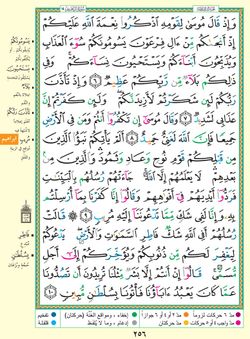 وَإِذْ قَالَ مُوسَىٰ لِقَوْمِهِ ٱذْكُرُوا۟ نِعْمَةَ ٱللَّهِ عَلَيْكُمْ
إِذْ أَنجَىٰكُم مِّنْ ءَالِ فِرْعَوْنَ يَسُومُونَكُمْ سُوٓءَ ٱلْعَذَابِ
وَيُذَبِّحُونَ أَبْنَآءَكُمْ وَيَسْتَحْيُونَ نِسَآءَكُمْ وَفِى
ذَٰلِكُم بَلَآءٌ مِّن رَّبِّكُمْ عَظِيمٌ ٦ وَإِذْ تَأَذَّنَ
رَبُّكُمْ لَئِن شَكَرْتُمْ لَأَزِيدَنَّكُمْ وَلَئِن كَفَرْتُمْ إِنَّ
عَذَابِى لَشَدِيدٌ ٧ وَقَالَ مُوسَىٰ إِن تَكْفُرُوٓا۟ أَنتُمْ وَمَن فِى ٱلْأَرْضِ
جَمِيعًا فَإِنَّ ٱللَّهَ لَغَنِىٌّ حَمِيدٌ ٨ أَلَمْ يَأْتِكُمْ نَبَؤُا۟ ٱلَّذِينَ
مِن قَبْلِكُمْ قَوْمِ نُوحٍ وَعَادٍ وَثَمُودَ وَٱلَّذِينَ مِنۢ بَعْدِهِمْ
لَا يَعْلَمُهُمْ إِلَّا ٱللَّهُ جَآءَتْهُمْ رُسُلُهُم بِٱلْبَيِّنَٰتِ
فَرَدُّوٓا۟ أَيْدِيَهُمْ فِىٓ أَفْوَٰهِهِمْ وَقَالُوٓا۟ إِنَّا كَفَرْنَا بِمَآ أُرْسِلْتُم
بِهِۦ وَإِنَّا لَفِى شَكٍّ مِّمَّا تَدْعُونَنَآ إِلَيْهِ مُرِيبٍ ٩ قَالَتْ
رُسُلُهُمْ أَفِى ٱللَّهِ شَكٌّ فَاطِرِ ٱلسَّمَٰوَٰتِ وَٱلْأَرْضِ يَدْعُوكُمْ
لِيَغْفِرَ لَكُم مِّن ذُنُوبِكُمْ وَيُؤَخِّرَكُمْ إِلَىٰٓ أَجَلٍ
مُّسَمًّى قَالُوٓا۟ إِنْ أَنتُمْ إِلَّا بَشَرٌ مِّثْلُنَا تُرِيدُونَ أَن تَصُدُّونَا
عَمَّا كَانَ يَعْبُدُ ءَابَآؤُنَا فَأْتُونَا بِسُلْطَٰنٍ مُّبِينٍ ١٠
إبراهيم
٢٥٦